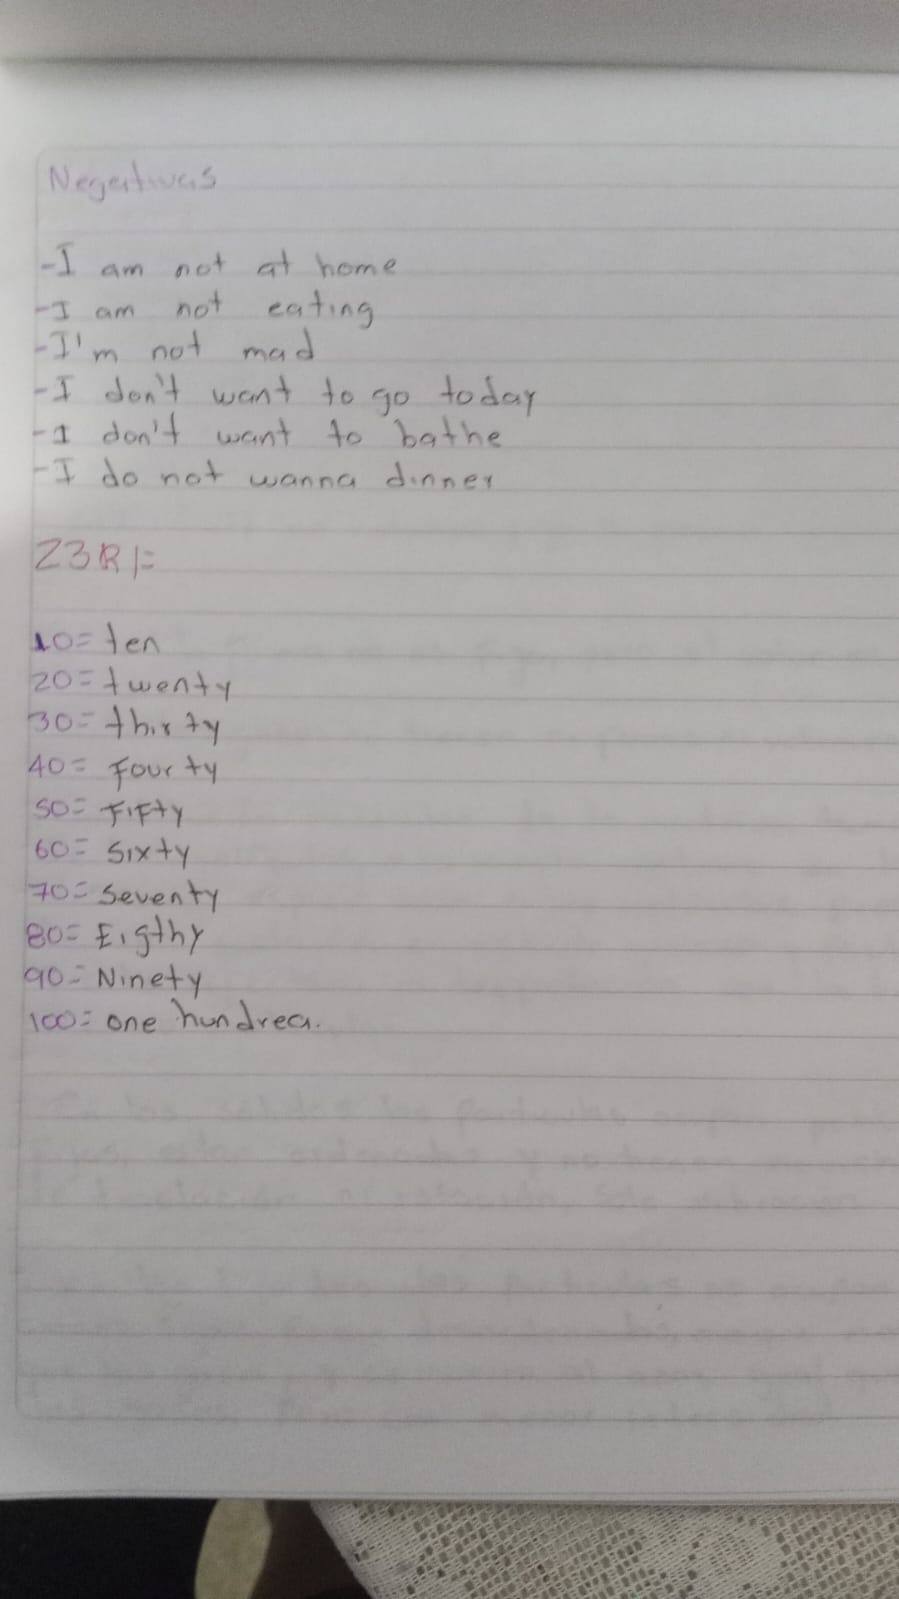 Negativas
-I am not at home
-I am not eating
-I'm not mad
-I don't want to go today
-I don't want to bathe
-I do not wanna dinner
10= ten
20= twenty
30= thirty
40= Fourty
50= FiFty
60= Sixty
70= Seventy
80= Eigthy
90= Ninety
100= one hundred.